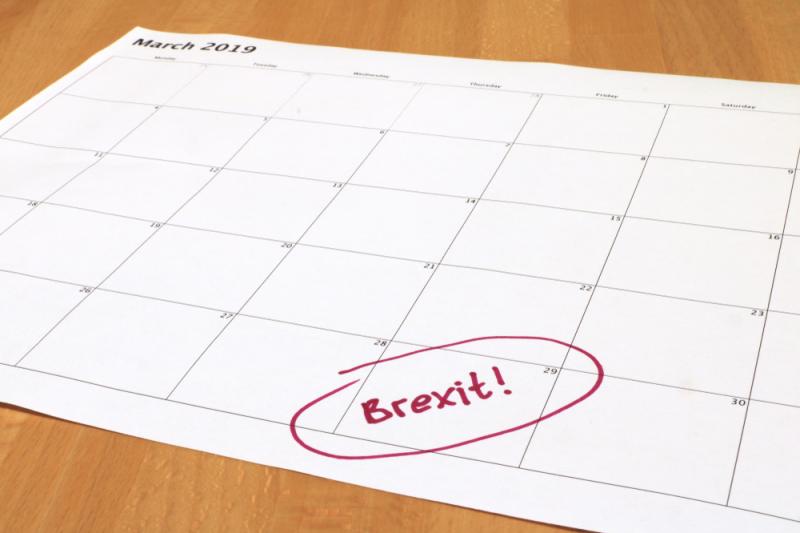 March 2019
Monday Tuesday Wednesday Thursday Friday Saturday
1
4 5 6 7 8 9
11 12 13 14 15 16
18 19 20 21 22 23
26 27 28 29 30
Brexit!